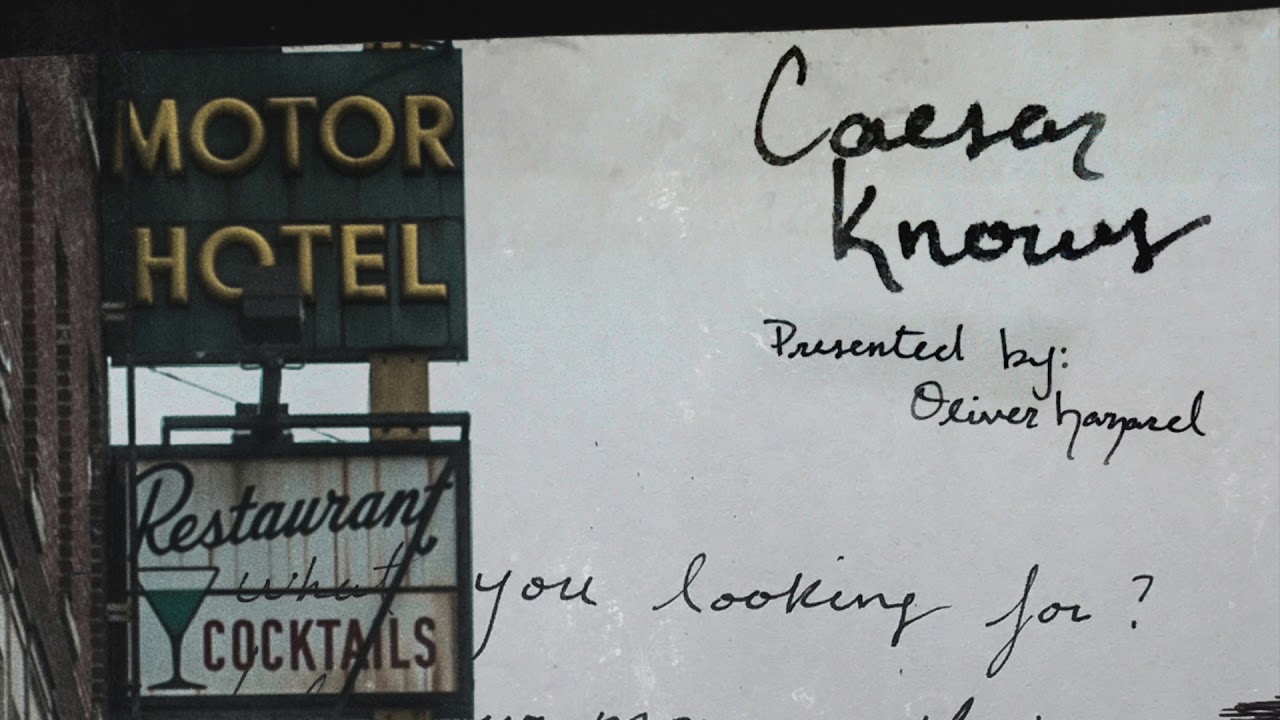 MOTOR
HOTEL
Restaurant
COCKTAILS
Caesar
Knows
Presented by:
Oliver
what you looking for?